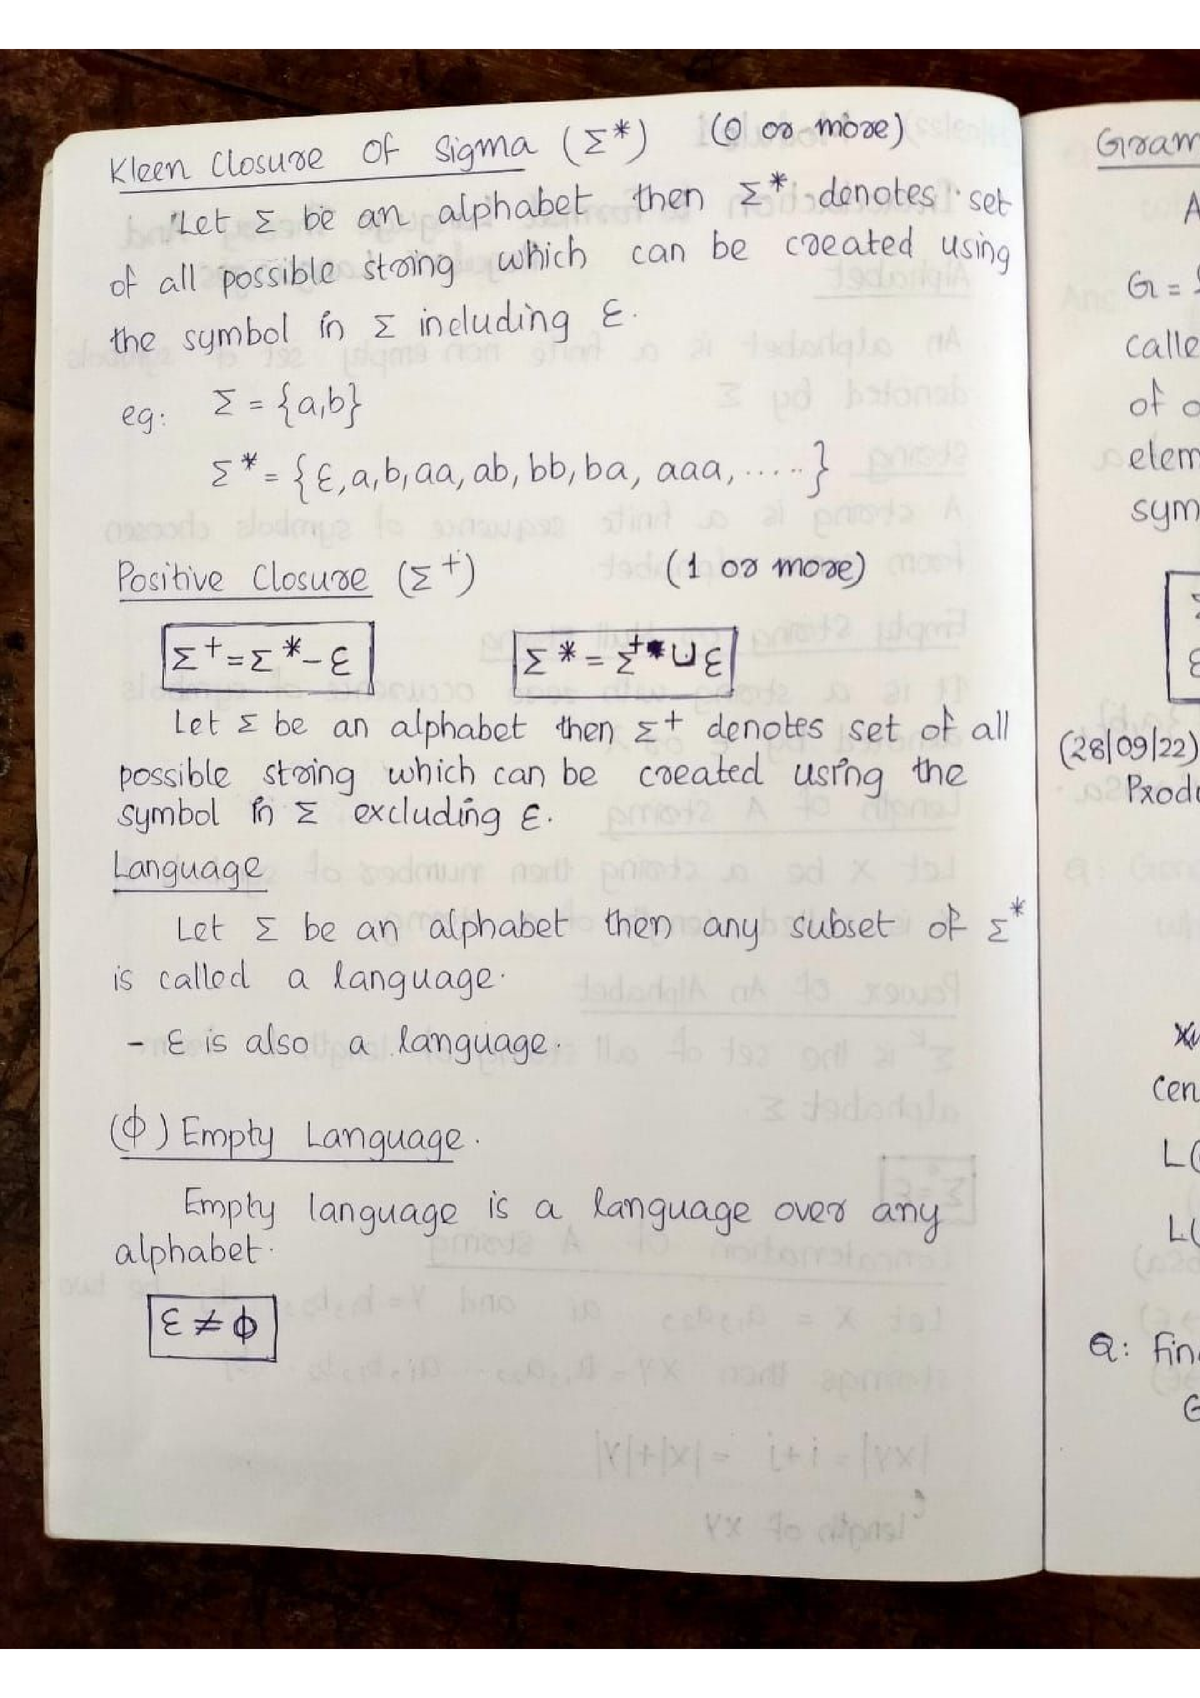 Kleen Closure Of Sigma (Σ*) (0 or more)
Let Σ be an alphabet then Σ* denotes set
of all possible string which can be created using
the symbol in Σ including ε.
eg: Σ = {a,b}
Σ* = {ε,a,b,aa,ab,bb,ba, aaa,.....}
Positive Closure (Σ+) (1 or more)
Σ+=Σ*-ε Σ*=Σ+∪ε
Let Σ be an alphabet then Σ+ denotes set of all
possible string which can be created using the
symbol in Σ excluding ε.
Language
Let Σ be an alphabet then any subset of Σ*
is called a language.
- ε is also a language.
(ϕ) Empty Language.
Empty language is a language over any
alphabet.
ε ≠ ϕ
Gram
A
G =
calle
of
elem
sym
(28/09/22)
Produ
Cen
L(
L(
Q: Fin
G